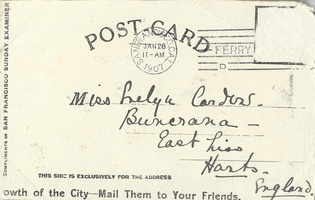 POST-CARD
SAN FRANCISCO, CAL.
JAN 28
11-AM
1907
FERRY
D
COMPLIMENTS OF SAN FRANCISCO SUNDAY EXAMINER
Miss Evelyn Cardew.
Buncrana —
East Liss
Hants.
England.
THIS SIDE IS EXCLUSIVELY FOR THE ADDRESS
owth of the City—Mail Them to Your Friends.